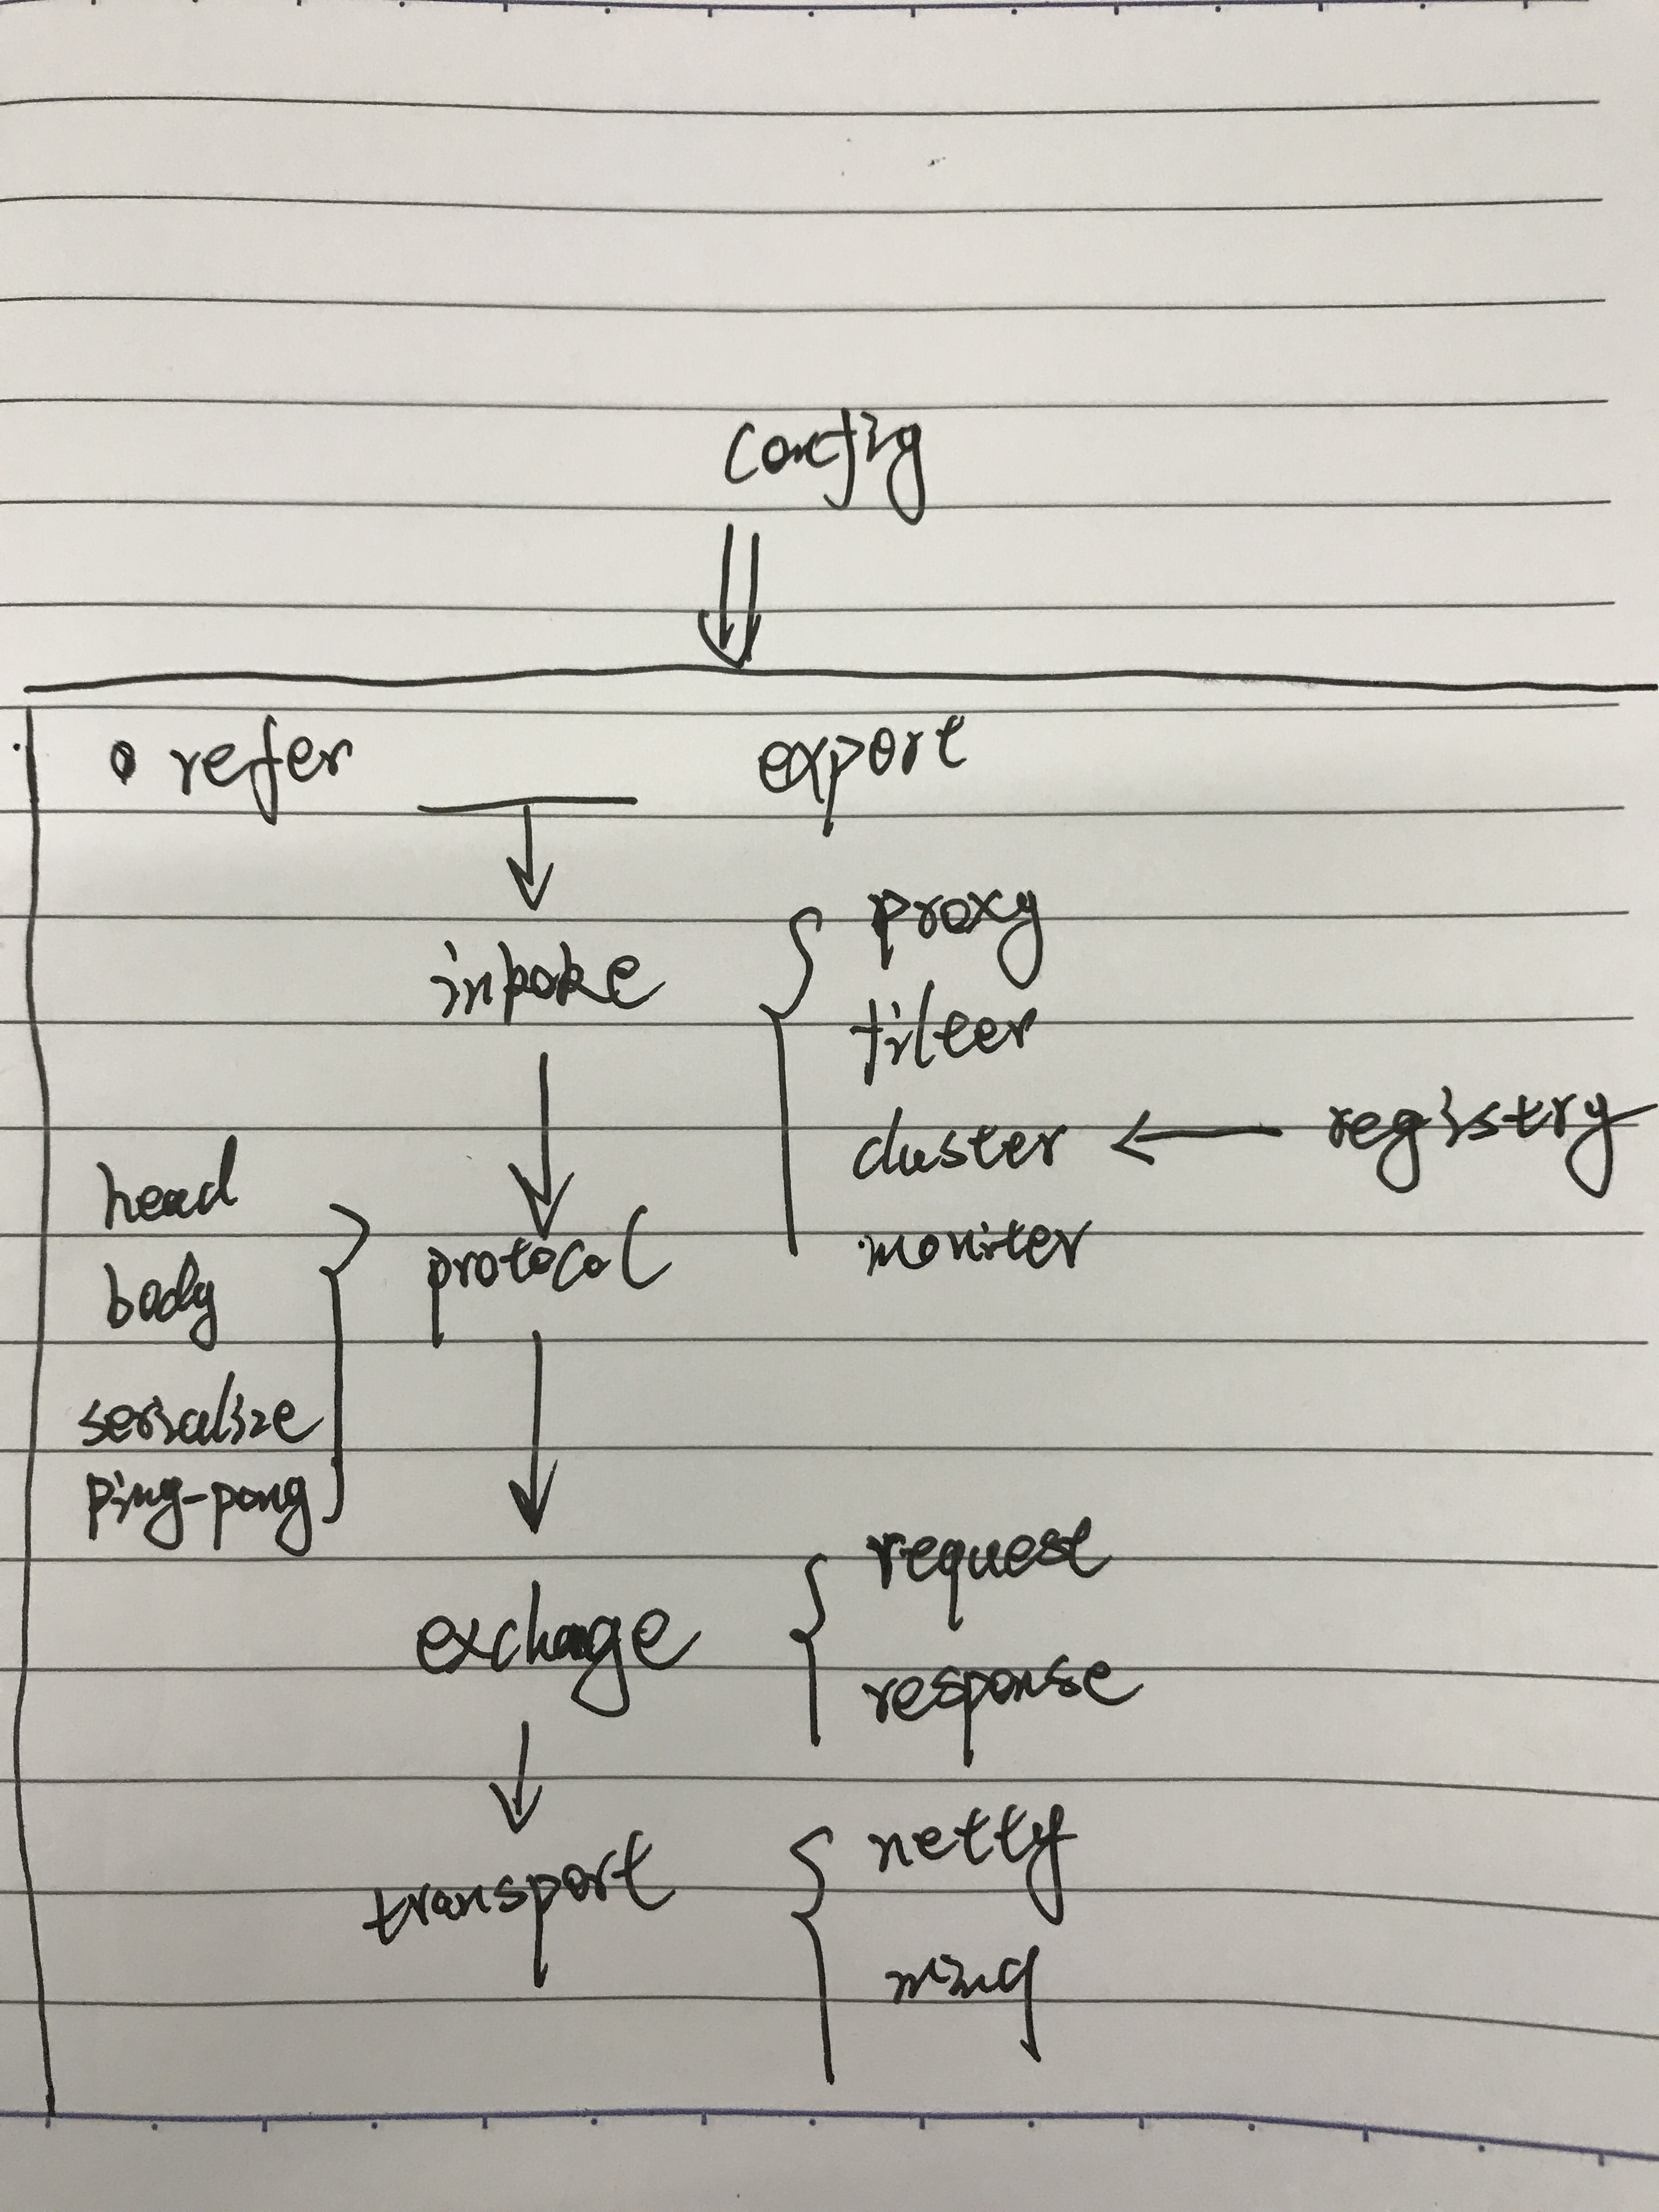 config
refer export
inpoke
proxy
filter
cluster ← registry
moniter
head
body
serialize
ping-pong
protocol
exchage
request
response
transport
netty